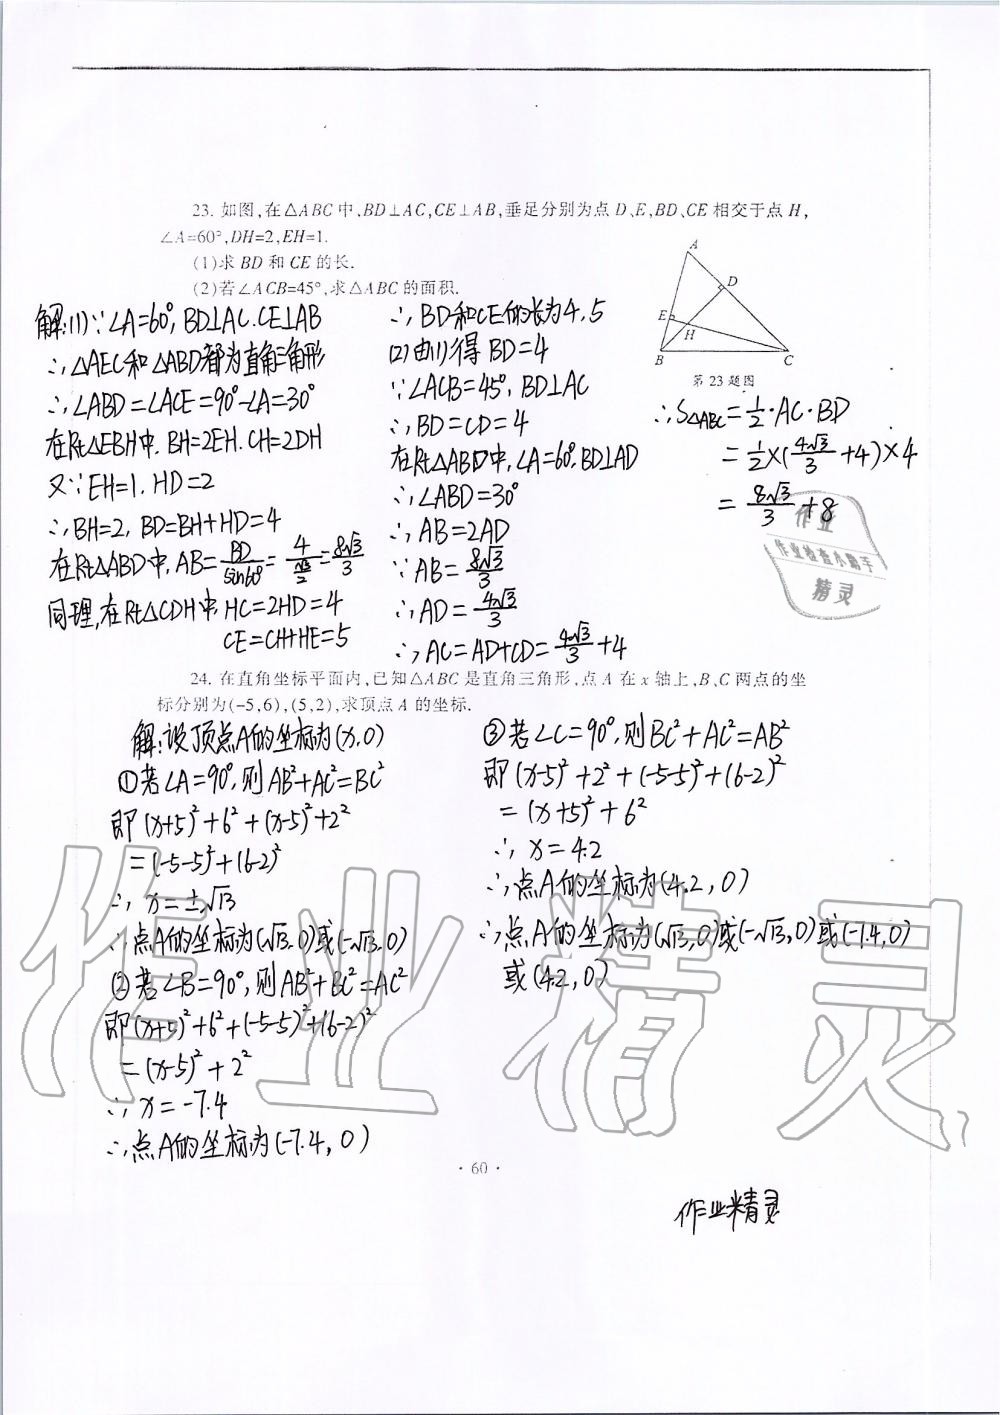 23. 如图,在△ABC中,BD⊥AC,CE⊥AB,垂足分别为点D、E,BD、CE相交于点H,
∠A=60°,DH=2,EH=1.
(1)求BD和CE的长.
(2)若∠ACB=45°,求△ABC的面积.
A
D
E
H
B
C
第23题图
解:(1)∵∠A=60°,BD⊥AC.CE⊥AB
∴△AEC和△ABD都为直角三角形
∴∠ABD=∠ACE=90°-∠A=30°
在Rt△EBH中.BH=2EH.CH=2DH
又∵EH=1.HD=2
∴BH=2,BD=BH+HD=4
在Rt△ABD中,AB=BD/sin60°=4/(√3/2)=8√3/3
同理,在Rt△CDH中,HC=2HD=4
CE=CH+HE=5
∴BD和CE的长为4.5
(2)由(1)得BD=4
∵∠ACB=45°,BD⊥AC
∴BD=CD=4
在Rt△ABD中,∠A=60°,BD⊥AD
∴∠ABD=30°
∴AB=2AD
∵AB=8√3/3
∴AD=4√3/3
∴AC=AD+CD=4√3/3+4
∴S△ABC=1/2·AC·BD
=1/2×(4√3/3+4)×4
=8√3/3+8
作业
作业检查小助手
精灵
24. 在直角坐标平面内,已知△ABC是直角三角形,点A在x轴上,B、C两点的坐
标分别为(-5,6),(5,2),求顶点A的坐标.
解:设顶点A的坐标为(x,0)
①若∠A=90°,则AB²+AC²=BC²
即(x+5)²+6²+(x-5)²+2²
=(-5-5)²+(6-2)²
∴x=±√13
∴点A的坐标为(√13.0)或(-√13.0)
②若∠B=90°,则AB²+BC²=AC²
即(x+5)²+6²+(-5-5)²+(6-2)²
=(x-5)²+2²
∴x=-7.4
∴点A的坐标为(-7.4,0)
③若∠C=90°,则BC²+AC²=AB²
即(x-5)²+2²+(-5-5)²+(6-2)²
=(x+5)²+6²
∴x=4.2
∴点A的坐标为(4.2,0)
∴点A的坐标为(√13,0)或(-√13,0)或(-7.4,0)
或(4.2,0)
作业精灵
·60·
作业精灵